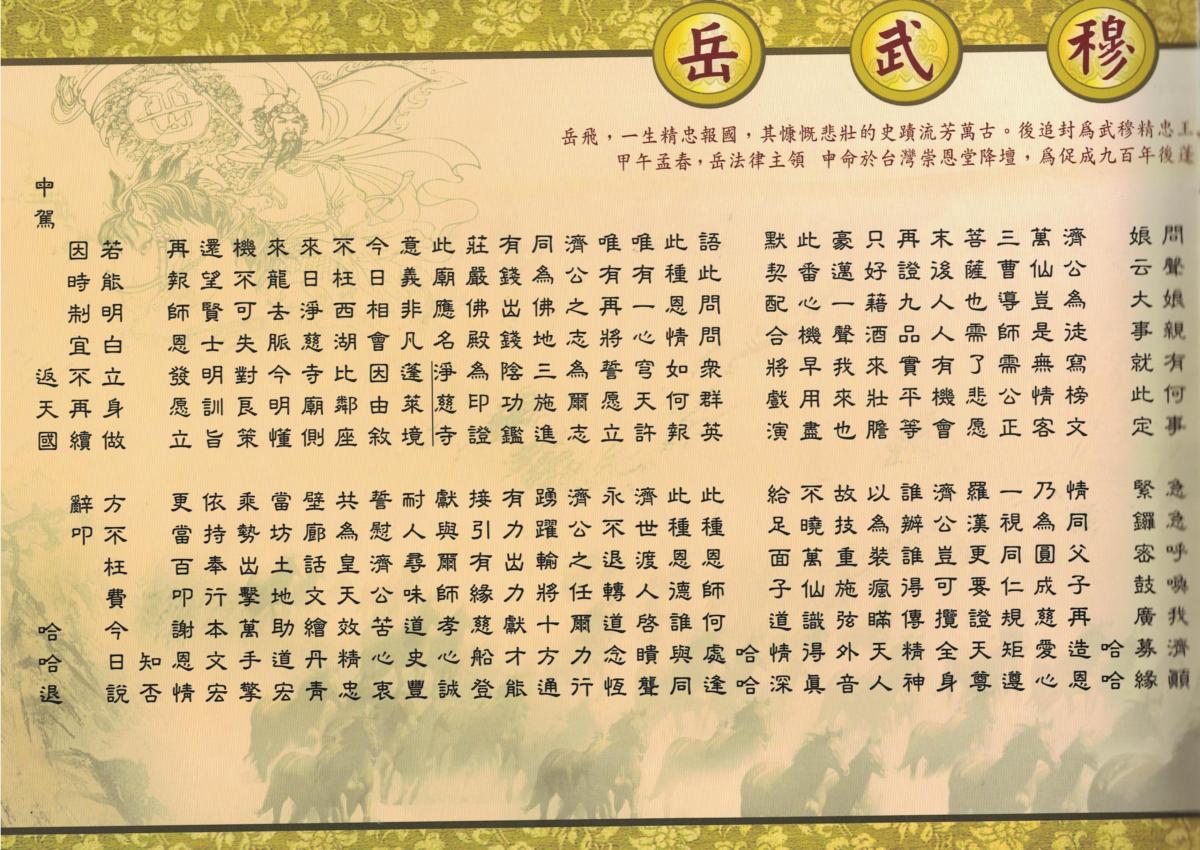 岳武穆
岳飛，一生精忠報國，其慷慨悲壯的史蹟流芳萬古。後追封為武穆精忠王
甲午孟春，岳法律主領　申命於台灣崇恩堂降壇，為促成九百年後蓬
問聲娘親有何事　急急呼喚我濟顛
娘云大事就此定　緊鑼密鼓廣募緣
哈哈
濟公為徒寫榜文　情同父子再造恩
萬仙豈是無情客　乃為圓成慈愛心
三曹導師需公正　一視同仁規矩遵
菩薩也需了悲愿　羅漢更要證天尊
末後人人有機會　濟公豈可攬全身
再證九品實平等　誰辦誰得傳精神
只好藉酒來壯膽　以為裝瘋瞞天人
豪邁一聲我來也　故技重施弦外音
此番心機早用盡　不曉萬仙識得眞
默契配合將戲演　給足面子道情深
哈哈
語此問問衆群英　此種恩師何處逢
此種恩情如何報　此種恩德誰與同
唯有一心穹天許　濟世渡人啓瞶聾
唯有再將誓愿立　永不退轉道念恆
濟公之志為爾志　濟公之任爾力行
同為佛地三施進　踴躍輸將十方通
有錢出錢陰功鑑　有力出力獻才能
莊嚴佛殿為印證　接引有緣慈船登
此廟應名淨慈寺　獻與爾師孝心誠
意義非凡蓬萊境　耐人尋味道史豐
今日相會因由敘　誓慰濟公苦心衷
不枉西湖比鄰座　共為皇天效精忠
來日淨慈寺廟側　壁廊話文繪丹青
來龍去脈今明懂　當坊土地助道宏
機不可失對良策　乘勢出擊萬手擎
還望賢士明訓旨　依持奉行本文宏
再報師恩發愿立　更當百叩謝恩情
知否
若能明白立身做　方不枉費今日說
因時制宜不再續　辭叩
申駕　返天國　哈哈退